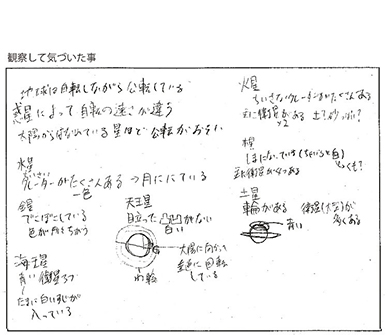 観察して気づいた事
地球は自転しながら公転している
惑星によって自転の速さが違う
太陽からはなれている星ほど公転がおそい
水星
クレーターがたくさんある→月ににている
一色
金星
でこぼこしている
色が月とちがう
海王星
青い 衛星3つ
たまに白いすじが
入っている
天王星
目立った凸凹がない
白い
太陽に向かって
垂直に回転
している
わ輪
火星
ちいさなクレーターがたくさんある
主に衛星がある
×2
土?砂っぽい?
木星
しまになっている(ちゃいろと白)
主に衛星が4つある
土星
輪がある
衛星(大型)が
多くある
青い